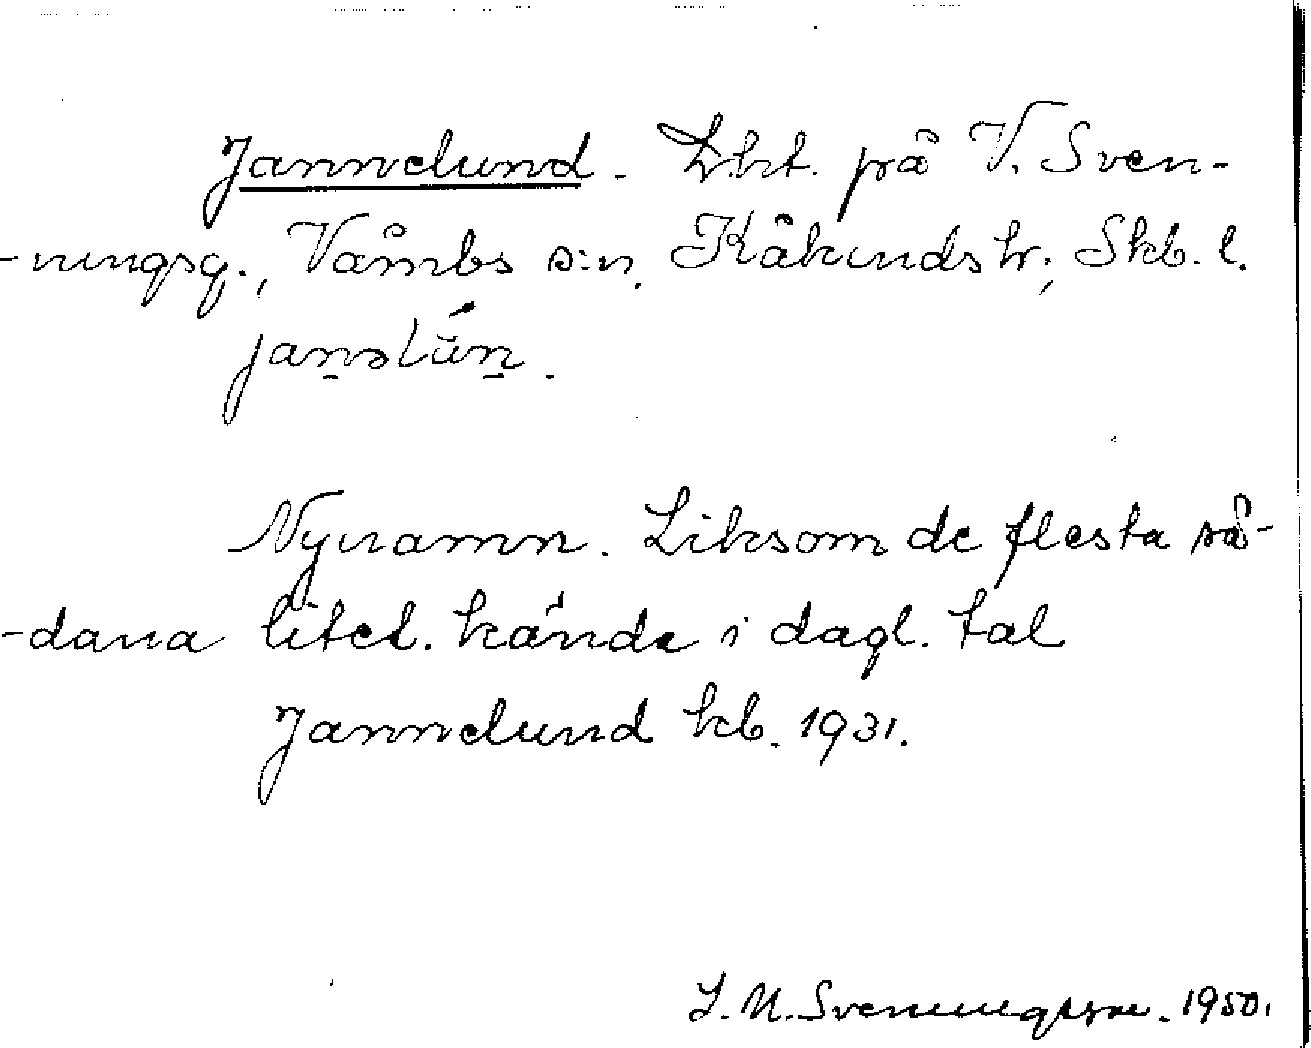 Jannelund. Lht. på V. Sven-
-ningsg., Våmbs s:n. Kåkinds hr; Skb. l.
janəlún.
Nynamn. Liksom de flesta så-
-dana litet. kände i dagl. tal
Jannelund kb. 1931.
S. N. Svenningsson. 1950.